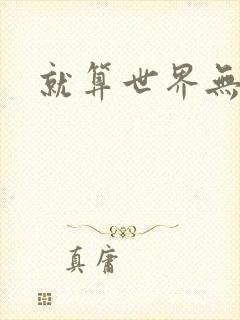 就算世界無
真庸